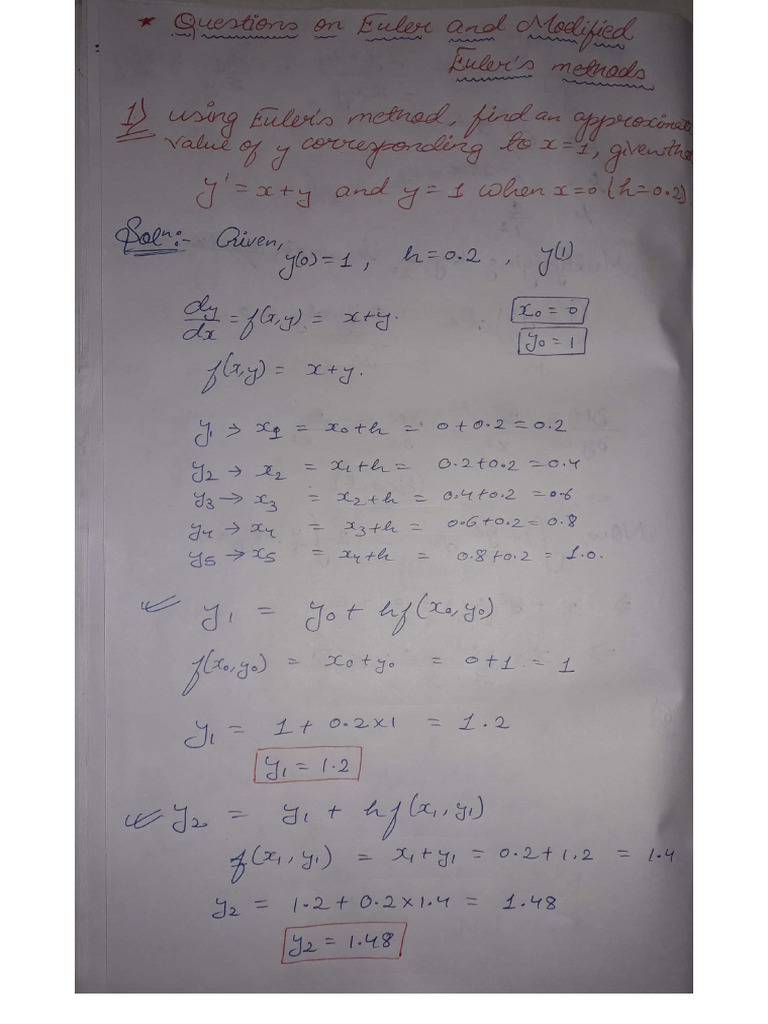 * Questions on Euler and Modified
Euler's methods
1) using Euler's method, find an approximate
value of y corresponding to x=1, given that
y' = x+y and y = 1 when x=0 (h=0.2)
Solⁿ:- Given,
y(0) = 1 , h = 0.2 , y(1)
dy/dx = f(x,y) = x+y.
x₀ = 0
y₀ = 1
f(x,y) = x+y.
y₁ → x₁ = x₀+h = 0+0.2 = 0.2
y₂ → x₂ = x₁+h = 0.2+0.2 = 0.4
y₃ → x₃ = x₂+h = 0.4+0.2 = 0.6
y₄ → x₄ = x₃+h = 0.6+0.2 = 0.8
y₅ → x₅ = x₄+h = 0.8+0.2 = 1.0.
✓ y₁ = y₀ + hf(x₀,y₀)
f(x₀,y₀) = x₀+y₀ = 0+1 = 1
y₁ = 1 + 0.2×1 = 1.2
y₁ = 1.2
✓ y₂ = y₁ + hf(x₁,y₁)
f(x₁,y₁) = x₁+y₁ = 0.2+1.2 = 1.4
y₂ = 1.2+0.2×1.4 = 1.48
y₂ = 1.48